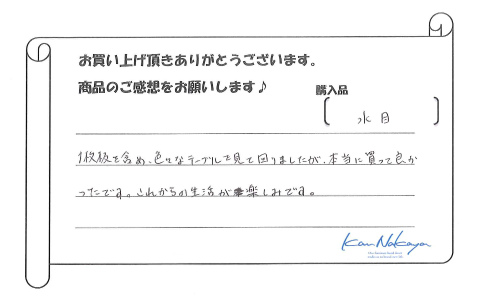 お買い上げ頂きありがとうございます。
商品のご感想をお願いします♪
購入品
水目
1枚板を含め、色々なテーブルを見て回りましたが、本当に買って良か
ったです。これからの生活が楽しみです。
Kan Nakaya